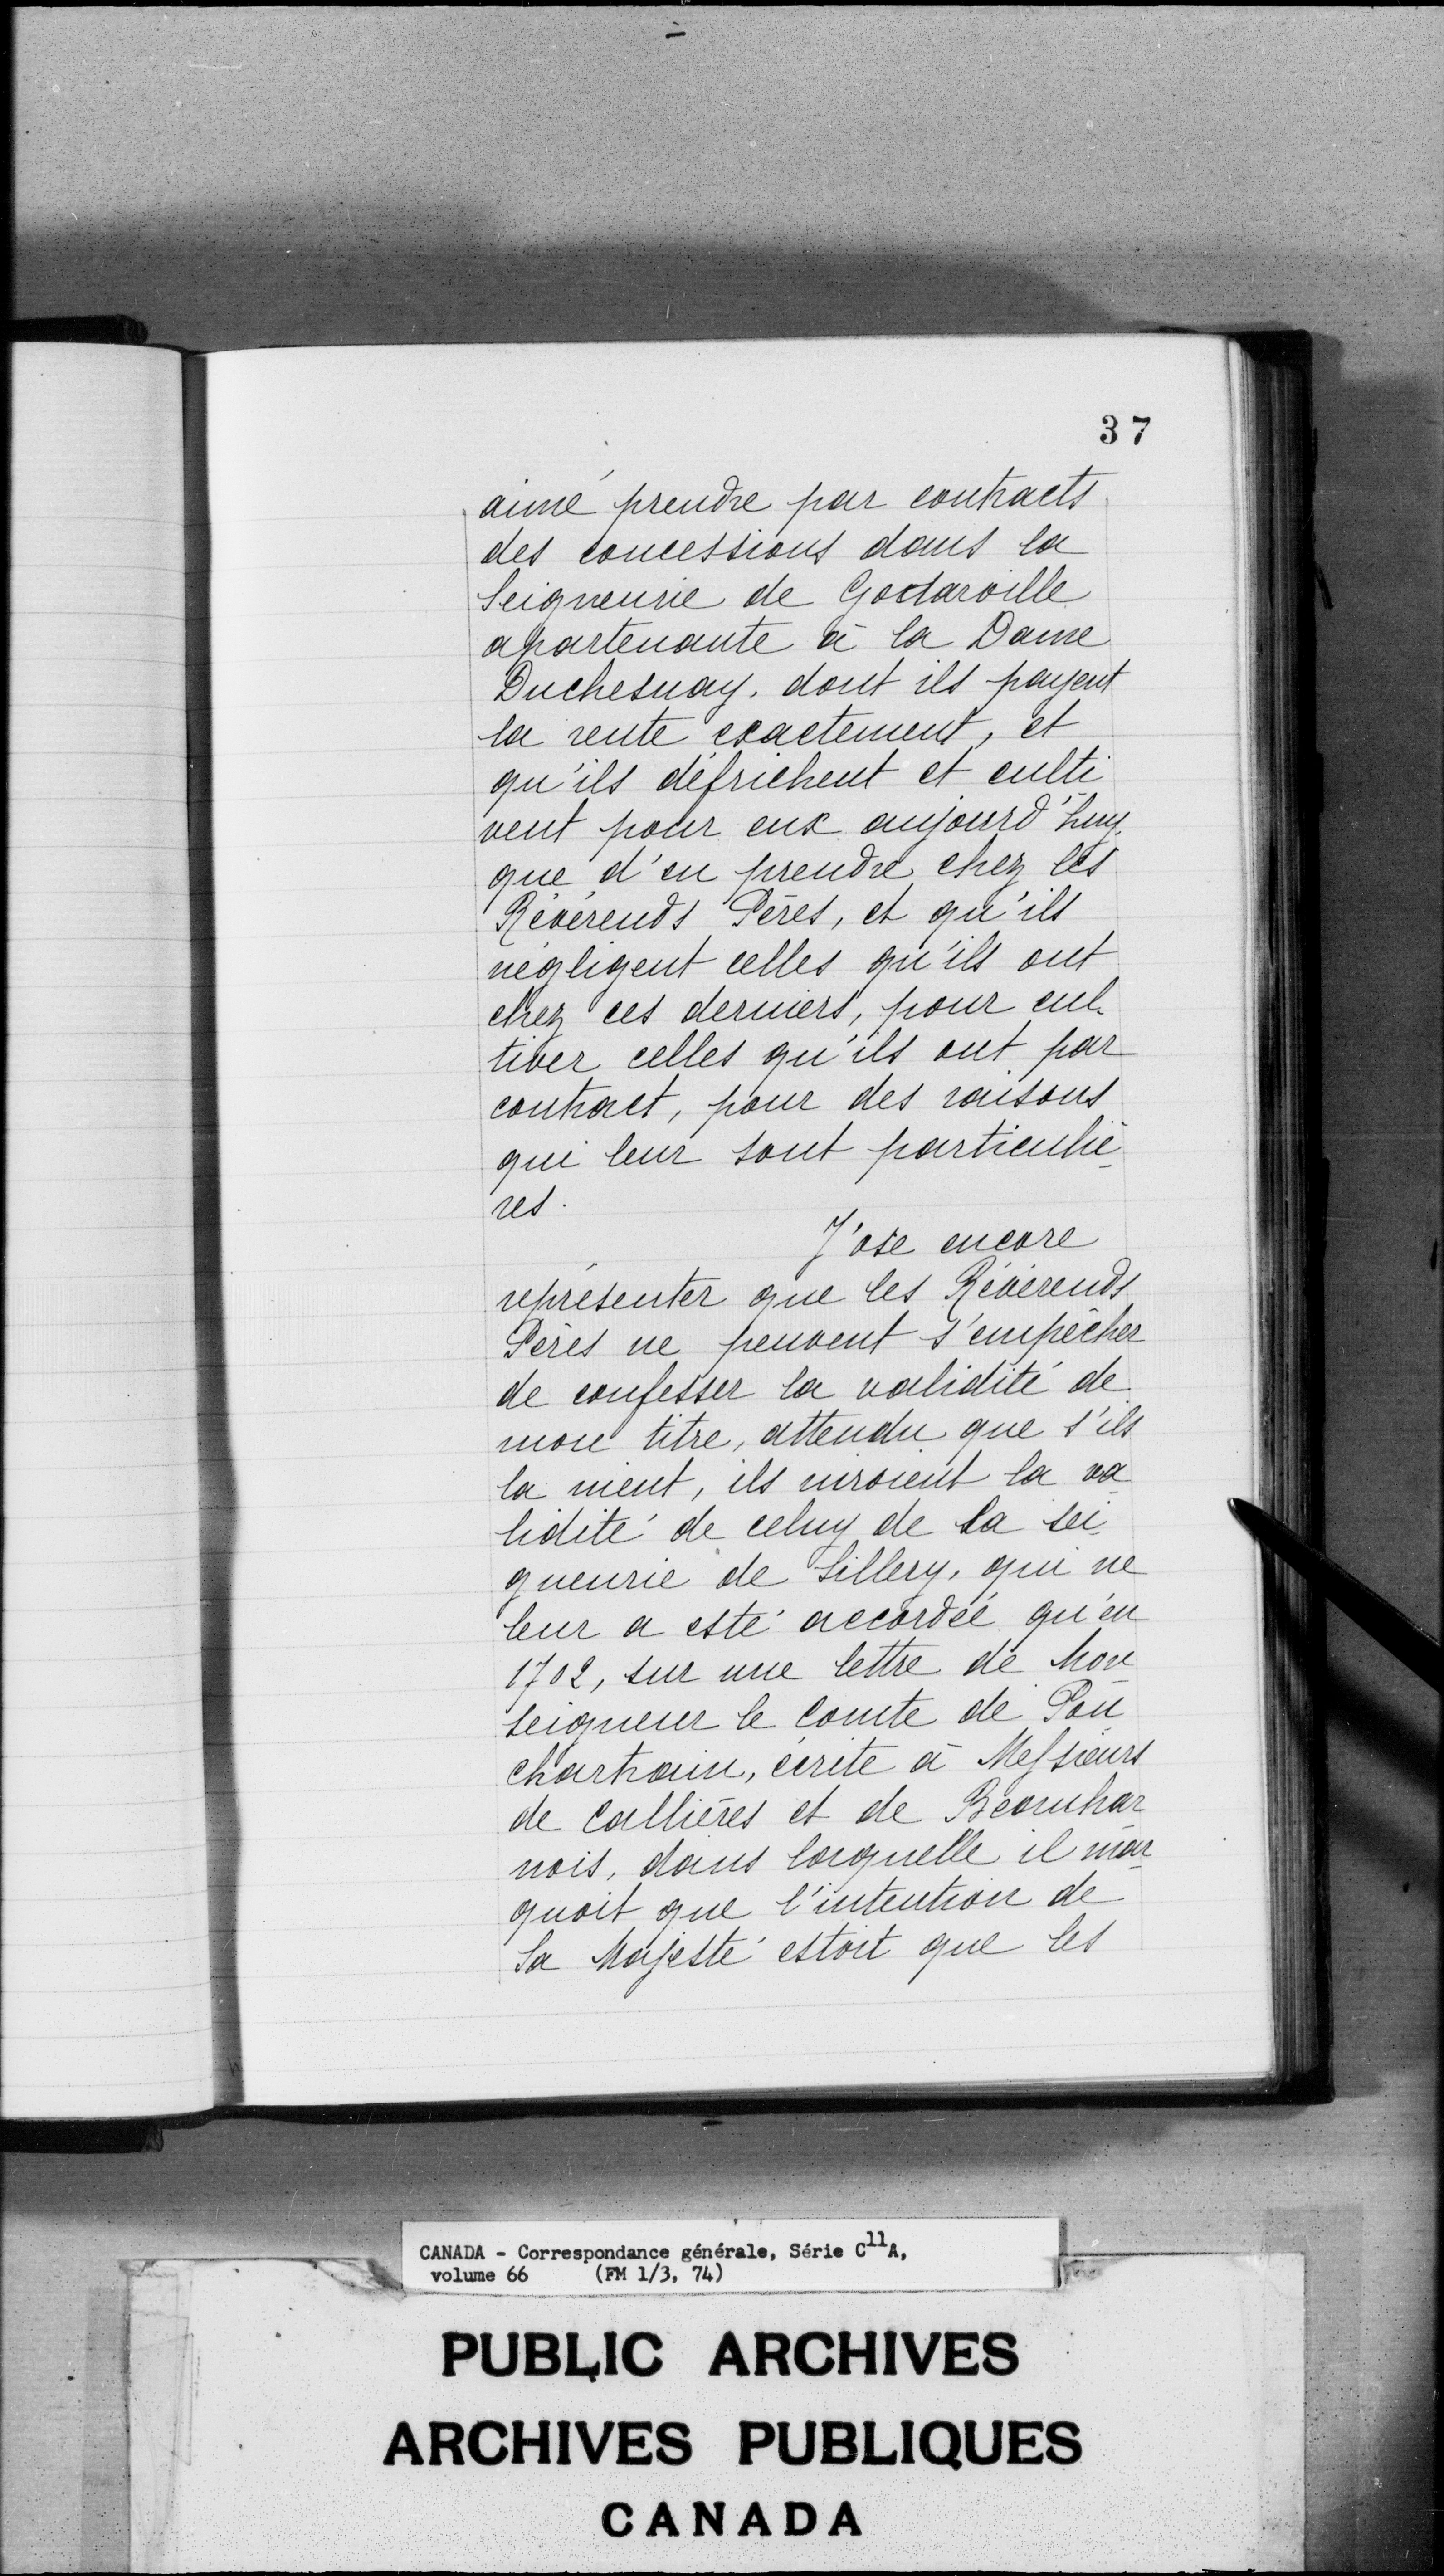 37
aimé prendre par contracts
des concessions dans la
Seigneurie de Godarville
apartenante à la Dame
Duchesnay, dont ils payent
la rente exactement, et
qu'ils défrichent et culti
vent pour eux aujourd'huy,
que d'en prendre chez les
Révérends Pères, et qu'ils
négligent celles qu'ils ont
chez ces derniers, pour cul-
tiver celles qu'ils ont par
contract, pour des raisons
qui leur sont particuliè-
res.
J'ose encore
représenter que les Révérends
Pères ne peuvent s'empêcher
de confesser la validité de
mon titre, attendu que s'ils
la nient, ils niroient la va-
lidité de celuy de la sei-
gneurie de Sillery, qui ne
leur a esté accordée qu'en
1702, sur une lettre de Mon-
seigneur le Comte de Pon-
chartrain, écrite à Messieurs
de Callières et de Beauhar-
nois, dans laquelle il mar-
quoit que l'intention de
Sa Majesté estoit que les
CANADA - Correspondance générale, Série C11A,
volume 66 (FM 1/3, 74)
PUBLIC ARCHIVES
ARCHIVES PUBLIQUES
CANADA